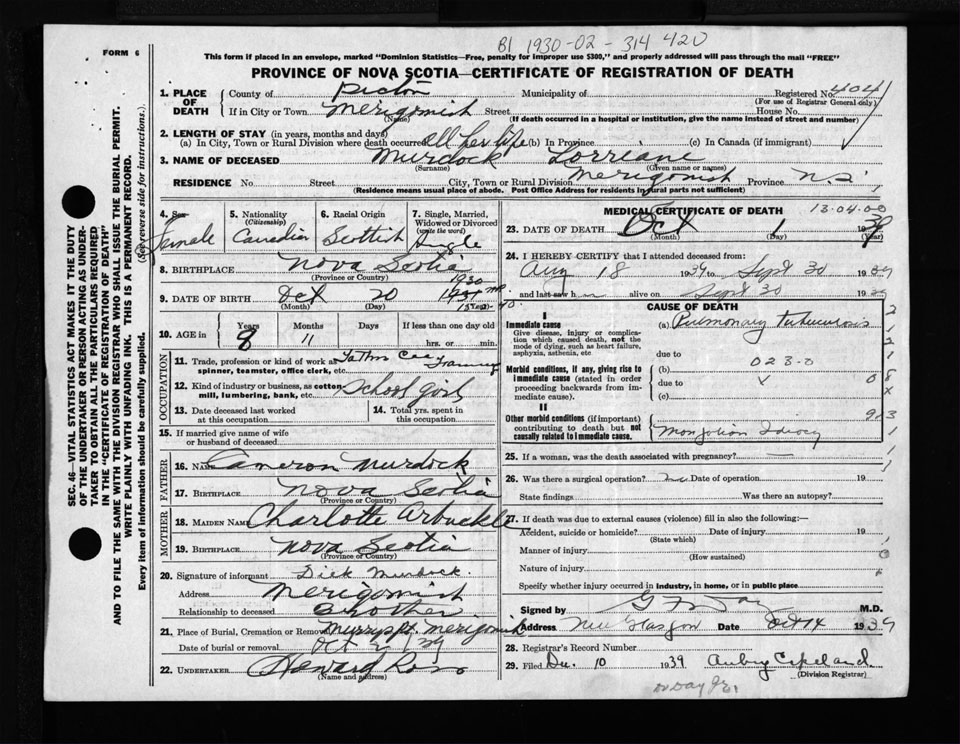 B1 1930-02-314420
FORM 6
This form if placed in an envelope, marked "Dominion Statistics—Free, penalty for improper use $300," and properly addressed will pass through the mail "FREE"
PROVINCE OF NOVA SCOTIA—CERTIFICATE OF REGISTRATION OF DEATH
SEC. 46—VITAL STATISTICS ACT MAKES IT THE DUTY
OF THE UNDERTAKER OR PERSON ACTING AS UNDER-
TAKER TO OBTAIN ALL THE PARTICULARS REQUIRED
IN THE "CERTIFICATE OF REGISTRATION OF DEATH"
AND TO FILE THE SAME WITH THE DIVISION REGISTRAR WHO SHALL ISSUE THE BURIAL PERMIT.
WRITE PLAINLY WITH UNFADING INK. THIS IS A PERMANENT RECORD.
Every item of information should be carefully supplied. (See reverse side for instructions.)
1. PLACE OF DEATH County of Pictou Municipality of Registered No. 404
(For use of Registrar General only)
If in City or Town Merigomish Street House No.
(Name) (If death occurred in a hospital or institution, give the name instead of street and number)
2. LENGTH OF STAY (in years, months and days)
(a) In City, Town or Rural Division where death occurred all her life (b) In Province (c) In Canada (if immigrant)
3. NAME OF DECEASED Murdock Lorreane
(Surname) (Given name or names)
RESIDENCE No. Street City, Town or Rural Division Merigomish Province N.S.
(Residence means usual place of abode. Post Office Address for residents in rural parts not sufficient)
4. Sex Female
5. Nationality (Citizenship) Canadian
6. Racial Origin Scottish
7. Single, Married, Widowed or Divorced (write the word) Single
8. BIRTHPLACE Nova Scotia
(Province or Country)
9. DATE OF BIRTH Oct 20 1930
(Month) (Day) (Year)
10. AGE in Years 8 Months 11 Days If less than one day old
hrs. or min.
OCCUPATION
11. Trade, profession or kind of work as
spinner, teamster, office clerk, etc.
12. Kind of industry or business, as cotton
mill, lumbering, bank, etc. School girl
13. Date deceased last worked
at this occupation
14. Total yrs. spent in
this occupation
15. If married give name of wife
or husband of deceased
FATHER
16. NAME Cameron Murdock
17. BIRTHPLACE Nova Scotia
(Province or Country)
MOTHER
18. MAIDEN NAME Charlotte Arbuckle
19. BIRTHPLACE Nova Scotia
(Province or Country)
20. Signature of informant Dick Murdock.
Address Merigomish
Relationship to deceased Brother
21. Place of Burial, Cremation or Removal Merigomish
Date of burial or removal Oct 2 /39
22. UNDERTAKER Howard
(Name and address)
MEDICAL CERTIFICATE OF DEATH 13-04-00
23. DATE OF DEATH Oct 1 1939
(Month) (Day) (Year)
24. I HEREBY CERTIFY that I attended deceased from:
Aug 18 1939 to Sept 30 1939
and last saw h alive on Sept 30 1939
CAUSE OF DEATH
I
Immediate cause (a) Pulmonary Tuberculosis
Give disease, injury or complica-
tion which caused death, not the
mode of dying, such as heart failure,
asphyxia, asthenia, etc
due to
Morbid conditions, if any, giving rise to (b) 023-0
immediate cause (stated in order due to
proceeding backwards from im-
mediate cause). (c)
II
Other morbid conditions (if important)
contributing to death but not
causally related to immediate cause. Mongolian Idiocy
25. If a woman, was the death associated with pregnancy? —
26. Was there a surgical operation? no Date of operation 19
State findings Was there an autopsy?
27. If death was due to external causes (violence) fill in also the following:—
Accident, suicide or homicide? Date of injury 19
(State which)
Manner of injury
(How sustained)
Nature of injury
Specify whether injury occurred in industry, in home, or in public place
Signed by G F Day M.D.
Address New Glasgow Date Oct 14 1939
28. Registrar's Record Number
29. Filed Dec. 10 1939 Aubrey Copeland.
(Division Registrar)
Dr Day Jr.